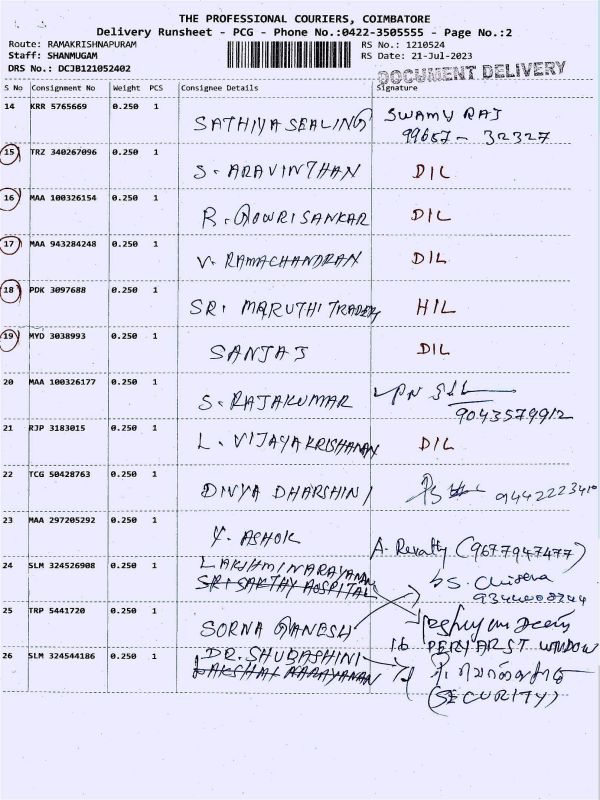 THE PROFESSIONAL COURIERS, COIMBATORE
Delivery Runsheet - PCG - Phone No.:0422-3505555 - Page No.:2
Route: RAMAKRISHNAPURAM RS No.: 1210524
Staff: SHANMUGAM RS Date: 21-Jul-2023
DRS No.: DCJB121052402 DOCUMENT DELIVERY
S No Consignment No Weight PCS Consignee Details Signature
14 KRR 5765669 0.250 1 SATHIYA SEALING SWAMY RAJ
99657-32327
15 TRZ 340267096 0.250 1 S. ARAVINTHAN DIL
16 MAA 100326154 0.250 1 R. GOWRISANKAR DIL
17 MAA 943284248 0.250 1 V. RAMACHANDRAN DIL
18 PDK 3097688 0.250 1 SRI MARUTHI TRADERS HIL
19 MYD 3038993 0.250 1 SANJAJ DIL
20 MAA 100326177 0.250 1 S. RAJAKUMAR
9043579912
21 RJP 3183015 0.250 1 L. VIJAYAKRISHANAN DIL
22 TCG 50428763 0.250 1 DIVYA DHARSHINI 9442223410
23 MAA 297205292 0.250 1 Y. ASHOK
A. Revathy (9677947477)
24 SLM 324526908 0.250 1 LAKSHMINARAYANAN
SRI SAKTHY HOSPITAL
25 TRP 5441720 0.250 1 SORNA GANESH
16 PERIYAR ST WINDOW
26 SLM 324544186 0.250 1 DR. SHUBASHINI
LAKSHAI NARAYANAN
(SECURITY)